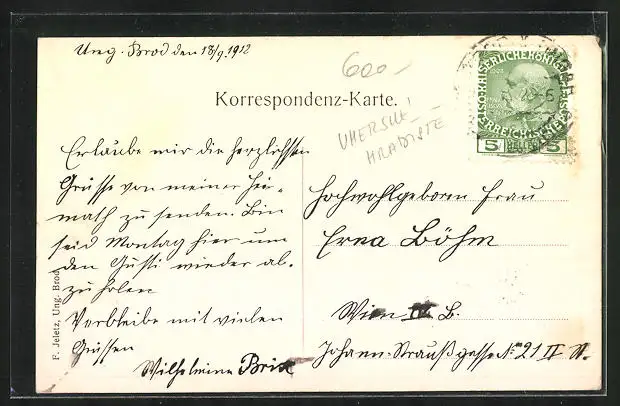 Ung. Brod den 18/9. 1912
600.-
Korrespondenz-Karte.
UHERSKÉ
HRADIŠTE
Erlaube mir die herzlichsten
Grüsse von meiner Hei-
math zu senden. Bin
seid Montag hier um
den Gusti wieder ab-
zu holen
Verbleibe mit vielen
Grüssen
Wilhelmine
Hochwohlgeboren Frau
Erna Böhm
Wien B.
Johann-Straußgasse No 21 II
F. Jeletz, Ung. Brod
5 HELLER 5